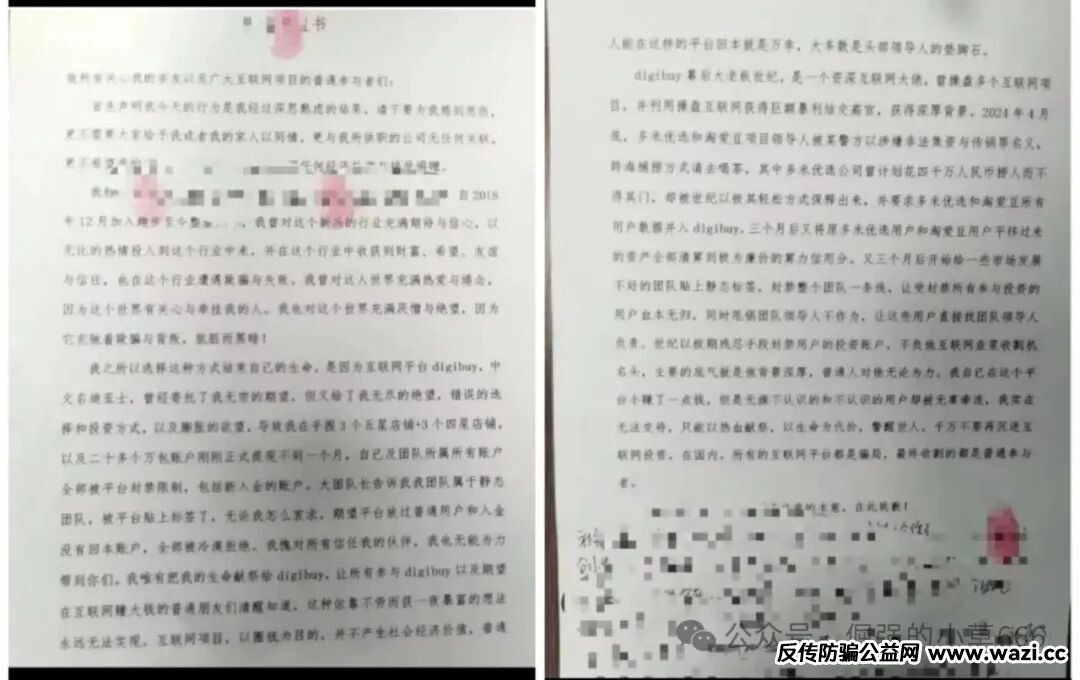 书
致所有关心我的亲友以及广大互联网项目的普通参与者们:
首先声明我今天的行为是我经过深思熟虑的结果，请不要为我感到悲伤，
更不需要大家给予我或者我的家人以同情，更与我所供职的公司无任何关联，
更不希望
任何经济
捐赠。
我
自 2018
年 12 月加入
至今整
我曾对这个新
的行业充满期待与信心，以
无比的热情投入到这个行业中来，并在这个行业中收获到财富、希望、友谊
与信任，也在这个行业遭遇欺骗与失败。我曾对这人世界充满热爱与
念，
因为这个世界有关心与牵挂我的人。我也对这个世界充满厌憎与绝望，因为
它充斥着欺骗与背叛，肮脏而黑暗!
我之所以选择这种方式结束自己的生命，是因为互联网平台 digibuy，中
文名迪亚士，曾经寄托了我无穷的期望，但又给了我无尽的绝望，错误的选
择和投资方式，以及膨胀的欲望，导致我在手握 3 个五星店铺+3 个四星店铺，
以及二十多个万包账户刚刚正式提现不到一个月，自己及团队所属所有账户
全部被平台封禁限制，包括新入金的账户。大团队长告诉我我团队属于静态
团队，被平台贴上标签了，无论我怎么哀求，期望平台放过普通用户和入金
没有回本账户，全部被冷漠拒绝。我愧对所有信任我的伙伴，我也无能为力
帮到你们。我唯有把我的生命献祭给 digibuy、让所有参与 digibuy 以及期望
在互联网赚大钱的普通朋友们清醒知道，这种依靠不劳而获一夜暴富的想法
永远无法实现。互联网项目，以圈钱为目的，并不产生社会经济价值，普通
人能在这样的平台回本就是万幸，大多数是头部领导人的垫脚石。
digibuy 幕后大老板世纪，是一个资深互联网大佬，曾操盘多个互联网项
目，并利用操盘互联网获得巨额暴利结交高官，获得深厚背景。2024 年 4 月
底，多米优选和淘爱豆项目领导人被某警方以涉嫌非法集资与传销等名义，
跨海捕捞方式请去喝茶，其中多米优选公司曾计划花四千万人民币捞人而不
得其门，却被世纪以极其轻松方式保释出来，并要求多米优选和淘爱豆所有
用户数据并入 digibuy，三个月后又将原多米优选用户和淘爱豆用户平移过来
的资产全部清算到极为廉价的算力信用分。又三个月后开始给一些市场发展
不好的团队贴上静态标签，封禁整个团队一条线，让受封禁所有参与投资的
用户血本无归，同时甩锅团队领导人不作为，让这些用户直接找团队领导人
负责。世纪以极期残忍手段封禁用户的投资账户，不负他互联网韭菜收割机
名头，主要的底气就是他背景深厚，普通人对他无论为力。我自己在这个平
台小赚了一点钱，但是无旗下认识的和不认识的用户却被无辜牵连，我实在
无法交待，只能以热血献祭，以生命为代价，警醒世人，千万不要再沉迷互
联网投资，在国内，所有的互联网平台都是骗局，最终收割的都是普通参与
者。
的本意，在此致歉!
公众号 · 倔强的小草666
反传防骗公益网 www.wazi.cc